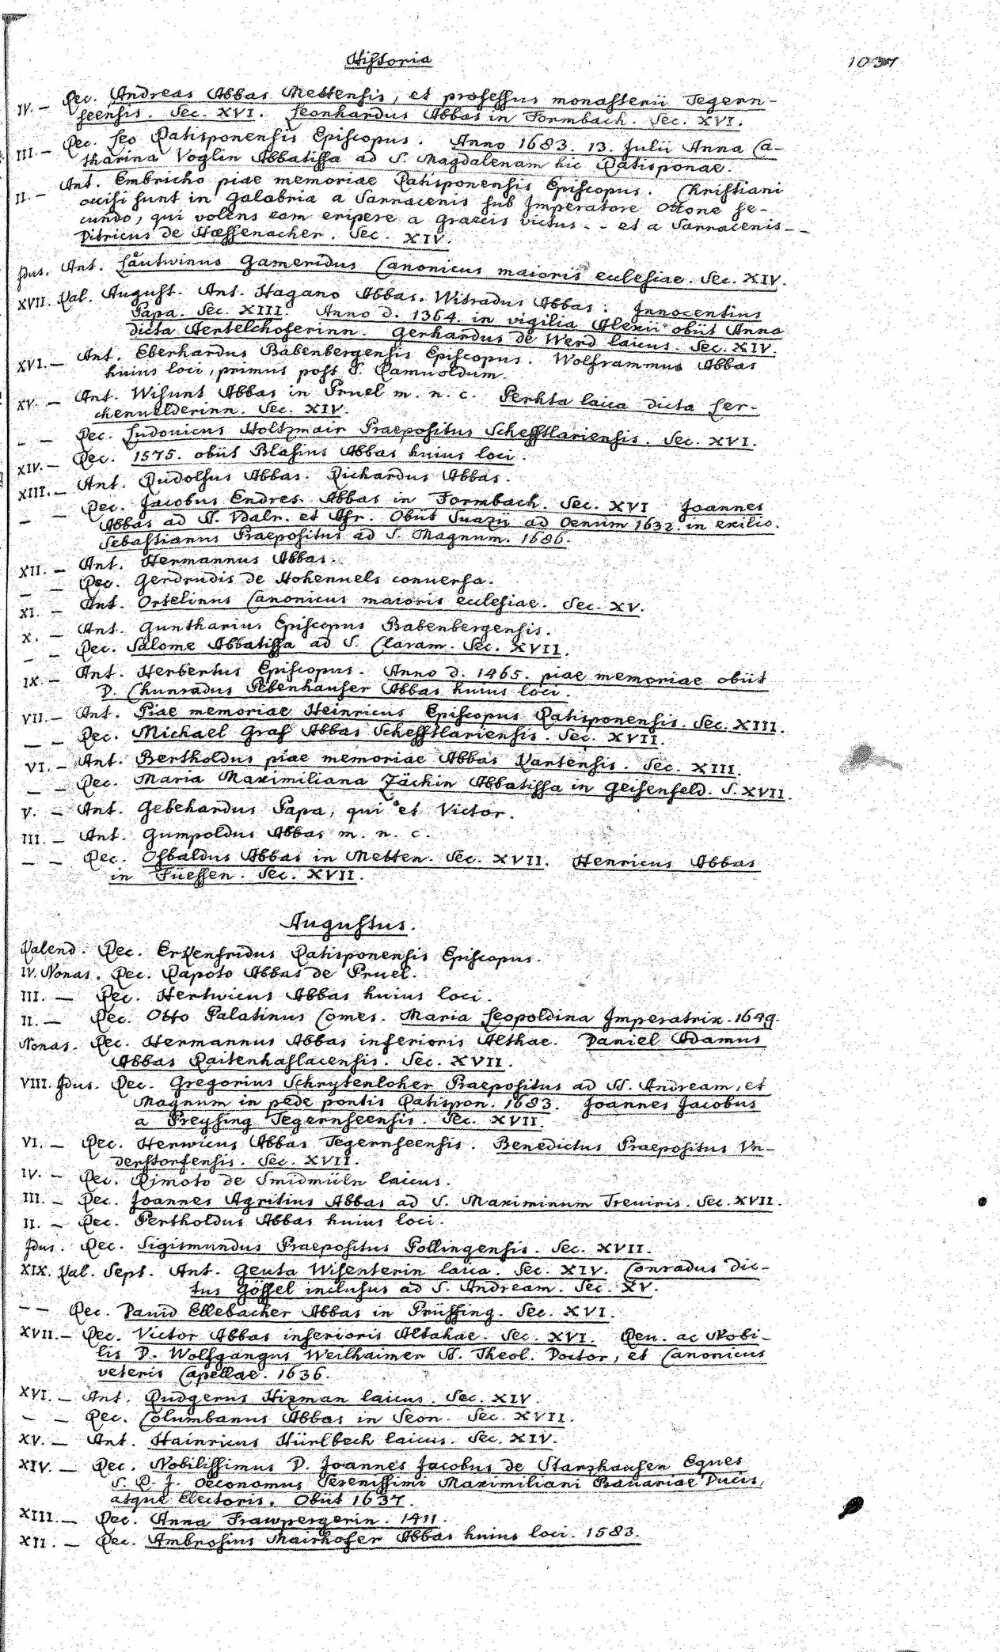 Historia
1037
IV. — Rec. Andreas Abbas Mettensis, et professus monasterii Tegern-
seensis. Sec. XVI. Leonhardus Abbas in Formbach. Sec. XVI.
III. — Rec. Leo Ratisponensis Episcopus. Anno 1683. 13. Julii Anna Ca-
tharina Voglin Abbatissa ad S. Magdalenam hic Ratisponae.
II. — Ant. Embricho piae memoriae Ratisponensis Episcopus. Christiani
occisi sunt in Galabria a Sarracenis sub Imperatore Ottone se-
cundo, qui volens eam eripere a Graecis victus - - et a Sarracenis - -
Ditricus de Haessenacher. Sec. XIV.
Idus. Ant. Lautwinus Gameridus Canonicus maioris eclesiae. Sec. XIV.
XVII. Kal. August. Ant. Hagano Abbas. Witradus Abbas. Innocentius
Papa. Sec. XIII. Anno d. 1364. in vigilia Alexii obiit Anna
dicta Hentelchoferinn. Gerhardus de Werd laicus. Sec. XIV.
XVI. — Ant. Eberhardus Babenbergensis Episcopus. Wolframmus Abbas
huius loci, primus post S. Ramuoldum.
XV. — Ant. Wisunt Abbas in Pruel m. n. c. Perhta laica dicta Ler-
chenuelderinn. Sec. XIV.
- - Rec. Ludovicus Holtzmair Praepositus Schefftlariensis. Sec. XVI.
XIV. — Rec. 1575. obiit Blasius Abbas huius loci.
XIII. — Ant. Rudolfus Abbas. Richardus Abbas.
- - Rec. Jacobus Endres Abbas in Formbach. Sec. XVI Joannes
Abbas ad SS. Vdalr. et Afr. Obiit Suazii ad Oenum 1632. in exilio.
Sebastianus Praepositus ad S. Magnum. 1686.
XII. — Ant. Hermannus Abbas.
- - Rec. Gerdrudis de Hohenuels conuersa.
XI. — Ant. Ortelinus Canonicus maioris eclesiae. Sec. XV.
X. — Ant. Guntharius Episcopus Babenbergensis.
- - Rec. Salome Abbatissa ad S. Claram. Sec. XVII.
IX. — Ant. Herbertus Episcopus. Anno d. 1465. piae memoriae obiit
D. Chunradus Pebenhauser Abbas huius loci.
VII. — Ant. Piae memoriae Heinricus Episcopus Ratisponensis. Sec. XIII.
- - Rec. Michael Graf Abbas Schefftlariensis. Sec. XVII.
VI. — Ant. Bertholdus piae memoriae Abbas Kantensis. Sec. XIII.
- - Rec. Maria Maximiliana Zächin Abbatissa in Geisenfeld. S. XVII.
V. — Ant. Gebehardus Papa, qui et Victor.
III. — Ant. Gumpoldus Abbas m. n. c.
- - Rec. Osbaldus Abbas in Metten. Sec. XVII. Henricus Abbas
in Füessen. Sec. XVII.
Augustus.
Kalend. Rec. Erkenfridus Ratisponensis Episcopus.
IV. Nonas. Rec. Rapoto Abbas de Pruel.
III. — Rec. Hertwicus Abbas huius loci.
II. — Rec. Otto Palatinus Comes. Maria Leopoldina Imperatrix. 1649.
Nonas. Rec. Hermannus Abbas inferioris Althae. Daniel Adamus
Abbas Raitenhaslacensis. Sec. XVII.
VIII. Idus. Rec. Gregorius Schrytenloher Praepositus ad SS. Andream, et
Magnum in pede pontis Ratispon. 1683. Joannes Jacobus
a Preysing Tegernseensis. Sec. XVII.
VI. — Rec. Herwicus Abbas Tegernseensis. Benedictus Praepositus Vn-
derstorfensis. Sec. XVII.
IV. — Rec. Rimoto de Smidmüln laicus.
III. — Rec. Joannes Agritius Abbas ad S. Maximinum Treuiris. Sec. XVII.
II. — Rec. Pertholdus Abbas huius loci.
Idus. Rec. Sigismundus Praepositus Pollingensis. Sec. XVII.
XIX. Kal. Sept. Ant. Geuta Wisenterin laica. Sec. XIV. Conradus dic-
tus Gössel inclusus ad S. Andream. Sec. XV.
- - Rec. Dauid Ellebacher Abbas in Prüffing. Sec. XVI.
XVII. — Rec. Victor Abbas inferioris Altahae. Sec. XVI. Reu. ac Nobi-
lis D. Wolfgangus Weilhaimer SS. Theol. Doctor, et Canonicus
veteris Capellae. 1636.
XVI. — Ant. Rudgerus Hizman laicus. Sec. XIV.
- - Rec. Columbanus Abbas in Seon. Sec. XVII.
XV. — Ant. Hainricus Hürlbech laicus. Sec. XIV.
XIV. — Rec. Nobilissimus D. Joannes Jacobus de Starzhausen Eques
S. R. J. Oeconomus Serenissimi Maximiliani Bauariae Ducis,
atque Electoris. Obiit 1637.
XIII. — Rec. Anna Frawpergerin. 1411.
XII. — Rec. Ambrosius Mairhofer Abbas huius loci. 1583.